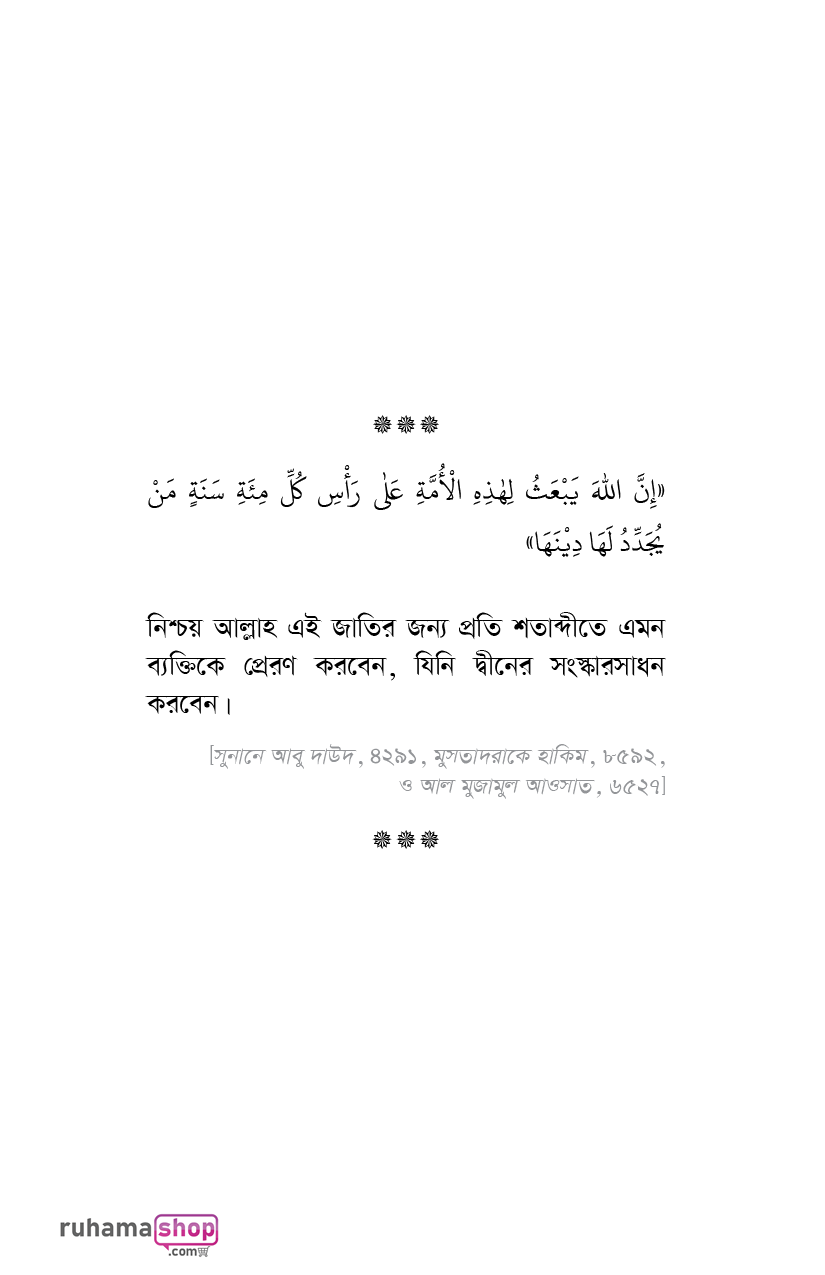 «إِنَّ اللهَ يَبْعَثُ لِهٰذِهِ الْأُمَّةِ عَلٰى رَأْسِ كُلِّ مِئَةِ سَنَةٍ مَنْ
يُجَدِّدُ لَهَا دِيْنَهَا»
নিশ্চয় আল্লাহ এই জাতির জন্য প্রতি শতাব্দীতে এমন
ব্যক্তিকে প্রেরণ করবেন, যিনি দ্বীনের সংস্কারসাধন
করবেন।
[সুনানে আবু দাউদ, ৪২৯১, মুসতাদরাকে হাকিম, ৮৫৯২,
ও আল মুজামুল আওসাত, ৬৫২৭]
ruhamashop
.com